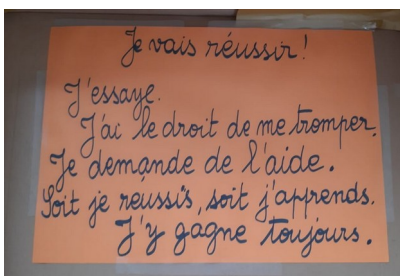 Je vais réussir!
J'essaye.
J'ai le droit de me tromper.
Je demande de l'aide.
Soit je réussis, soit j'apprends.
J'y gagne toujours.